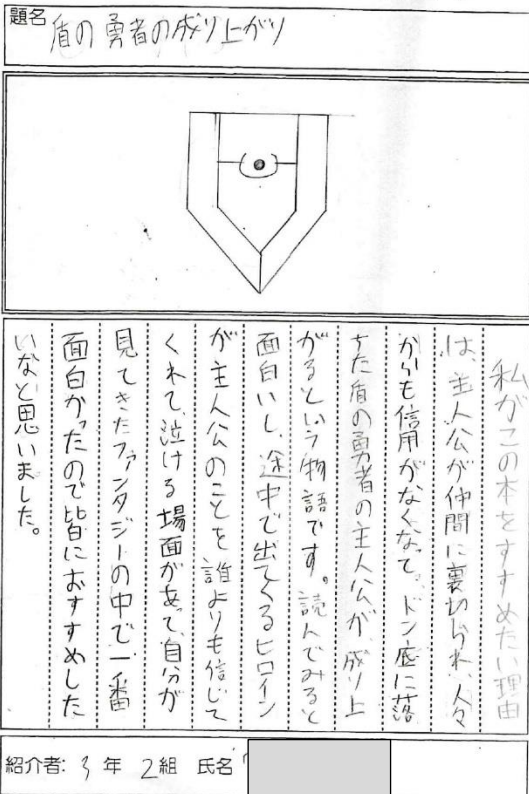 題名
盾の勇者の成り上がり
私がこの本をすすめたい理由
は、主人公が仲間に裏切られ、人々
からも信用がなくなって、ドン底に落
ちた盾の勇者の主人公が、成り上
がるという物語です。読んでみると
面白いし、途中で出てくるヒロイン
が主人公のことを誰よりも信じて
くれて、泣ける場面があって、自分が
見てきたファンタジーの中で一番
面白かったので皆におすすめした
いなと思いました。
紹介者: 3年 2組 氏名